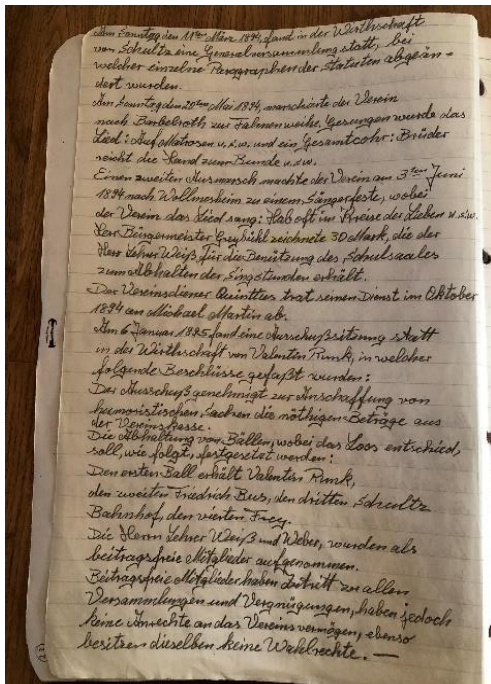 Am Sonntag den 11ten März 1894, fand in der Wirthschaft
von Schultz eine Generalversammlung statt, bei
welcher einzelne Paragraphen der Statuten abgeän-
dert wurden.
Am Sonntag den 20ten Mai 1894, marschierte der Verein
nach Barbelroth zur Fahnenweihe. Gesungen wurde das
Lied: Auf Matrosen u.s.w. und ein Gesamtcohr: Brüder
reicht die Hand zum Bunde u.s.w.
Einen zweiten Ausmarsch machte der Verein am 3ten Juni
1894 nach Wollmesheim zu einem Sängerfeste, wobei
der Verein das Lied sang: Hab oft im Kreise der Lieben u.s.w.
Herr Bürgermeister Greybühl zeichnete 30 Mark, die der
Herr Lehrer Weiß für die Benützung des Schulsaales
zum Abhalten der Singstunden erhält.
Der Vereinsdiener Quintties trat seinen Dienst im Oktober
1894 an Michael Martin ab.
Am 6 Januar 1895 fand eine Ausschußsitzung statt
in der Wirthschaft von Valentin Runk, in welcher
folgende Beschlüsse gefaßt wurden:
Der Ausschuß genehmigt zur Anschaffung von
humoristischen Sachen die nöthigen Beträge aus
der Vereinskasse.
Die Abhaltung von Bällen, wobei das Loos entschied,
soll, wie folgt, festgesetzt werden:
Den ersten Ball erhält Valentin Runk,
den zweiten Friedrich Bus, den dritten, Schultz
Bahnhof, den vierten Frey.
Die Herrn Lehrer Weiß und Weber, wurden als
beitragsfreie Mitglieder aufgenommen.
Beitragsfreie Mitglieder haben Zutritt zu allen
Versammlungen und Vergnügungen, haben jedoch
keine Anrechte an das Vereinsvermögen, ebenso
besitzen dieselben keine Wahlrechte. —